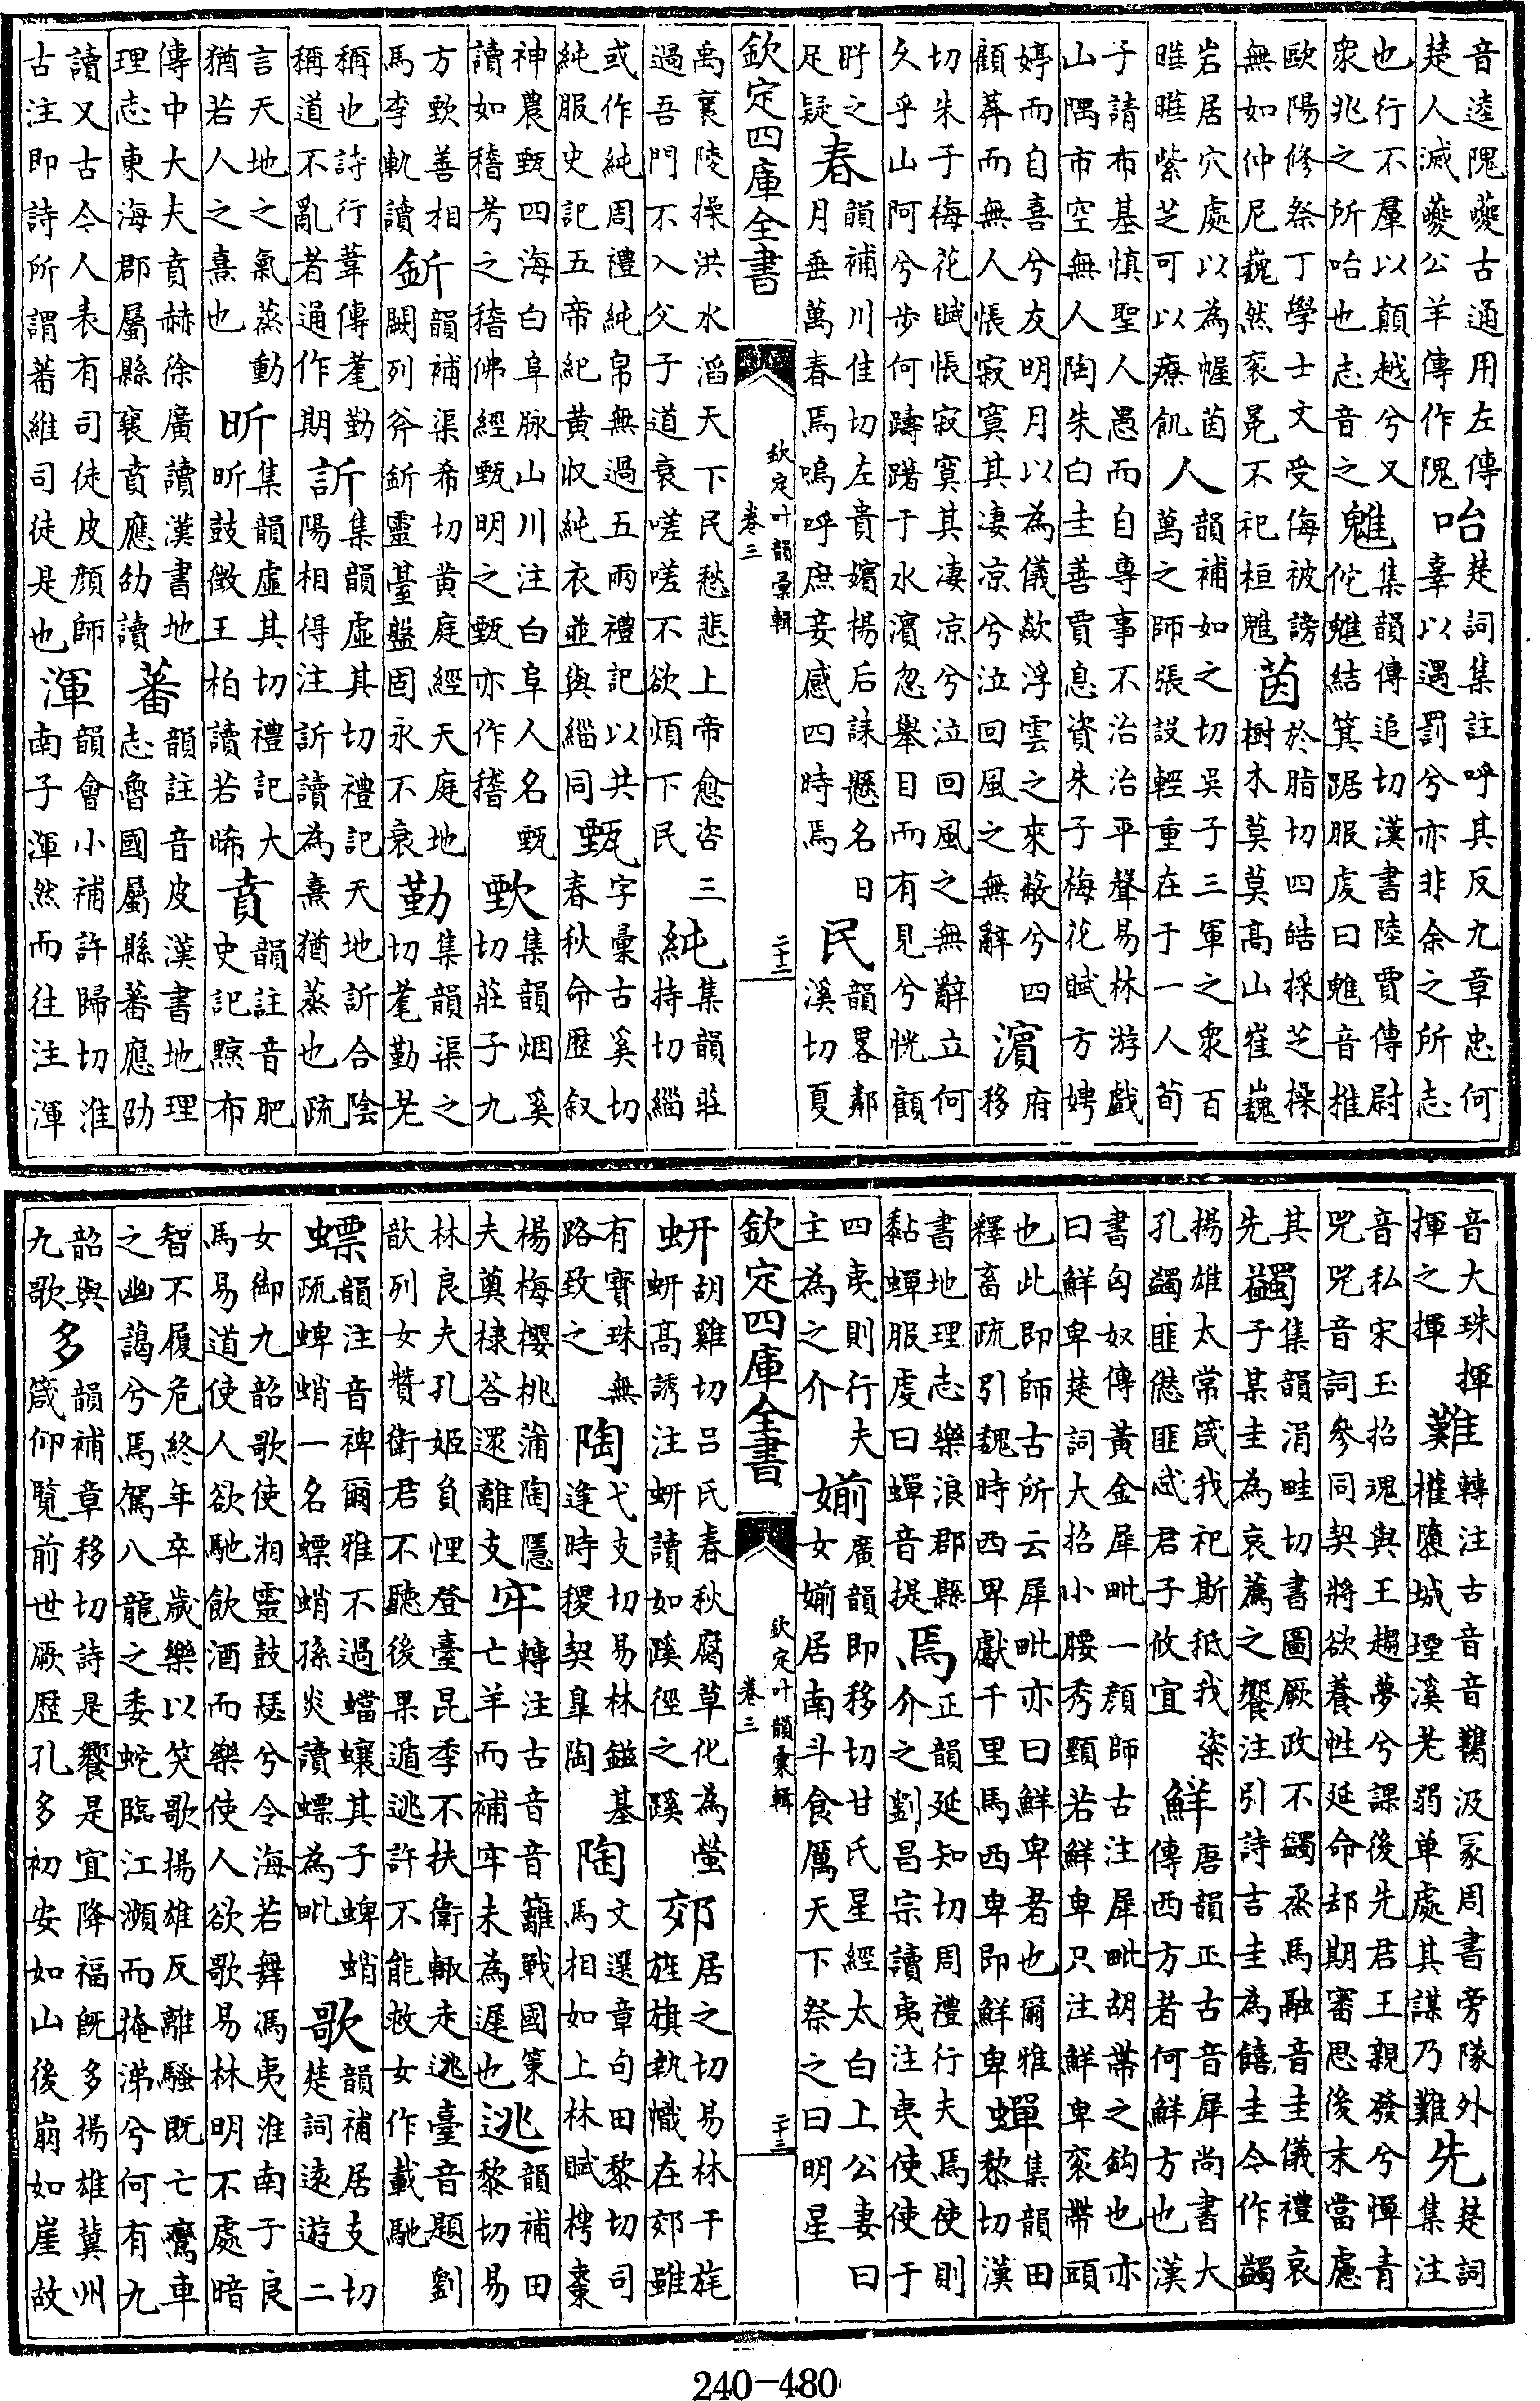 音逵隗夔古通用左傳楚人滅夔公羊傳作隗咍楚詞集註呼其反九章忠何辜以遇罰兮亦非余之所志
也行不羣以顛越兮又衆兆之所咍也志音之魋集韻傳追切漢書陸賈傳尉佗魋結箕踞服虔曰魋音椎
歐陽修祭丁學士文受侮被謗無如仲尼巍然衮冕不祀桓魋茵於脂切四皓採芝操樹木莫莫高山崔巍
岩居穴處以為幄茵曄曄紫芝可以療飢人韻補如之切吳子三軍之衆百萬之師張設輕重在于一人荀
子請布基慎聖人愚而自專事不治治平聲易林游戲山隅市空無人陶朱白圭善賈息資朱子梅花賦方娉
婷而自喜兮友明月以為儀歘浮雲之來蔽兮四顧莽而無人悵寂寞其凄凉兮泣回風之無辭濵府移
切朱子梅花賦悵寂寞其凄凉兮泣回風之無辭立何久乎山阿兮步何躊躇于水濵忽舉目而有見兮恍顧
盱之足疑春韻補川佳切左貴嬪楊后誄懸名日月垂萬春焉嗚呼庶妾感四時焉民韻畧鄰溪切夏
欽定四庫全書 欽定叶韻彙輯 卷三 二十二
禹襄陵操洪水滔天下民愁悲上帝愈咨三過吾門不入父子道衰嗟嗟不欲煩下民純集韻莊持切緇
或作純周禮純帛無過五兩禮記以共純服史記五帝紀黄收純衣並與緇同甄字彙古奚切春秋命歷叙
神農甄四海白阜脉山川注白阜人名甄讀如稽考之稽佛經甄明之甄亦作稽㪬集韻烟奚切莊子九
方㪬善相馬李軌讀釿韻補渠希切黄庭經天庭地闕列斧釿靈臺盤固永不衰勤集韻渠之切耄勤老
稱也詩行葦傳耄勤稱道不亂者通作期訢集韻虛其切禮記天地訢合陰陽相得注訢讀為熹猶蒸也疏
言天地之氣蒸動猶若人之熹也昕集韻虛其切禮記大昕鼓徵王柏讀若晞賁韻註音肥史記黥布
傳中大夫賁赫徐廣讀漢書地理志東海郡屬縣襄賁應劭讀蕃韻註音皮漢書地理志魯國屬縣蕃應劭
讀又古今人表有司徒皮顔師古注即詩所謂蕃維司徒是也渾韻會小補許歸切淮南子渾然而往注渾
音大珠揮揮之揮難轉注古音音觿汲冢周書旁隊外權隳城堙溪老弱单處其謀乃難先楚詞集注
音私宋玉招魂與王趨夢兮課後先君王親發兮憚青兕兕音詞參同契將欲養性延命却期審思後末當慮
其先蠲集韻涓畦切書圖厥政不蠲烝馬融音圭儀禮哀子某圭為哀薦之饗注引詩吉圭為饎圭令作蠲
揚雄太常箴我祀斯祗我粢孔蠲匪愆匪忒君子攸宜鮮唐韻正古音犀尚書大傳西方者何鮮方也漢
書匈奴傳黄金犀毗一顔師古注犀毗胡帶之鈎也亦曰鮮卑楚詞大招小腰秀頸若鮮卑只注鮮卑衮帶頭
也此即師古所云犀毗亦曰鮮卑者也爾雅釋畜疏引魏時西卑獻千里馬西卑即鮮卑蟬集韻田黎切漢
書地理志樂浪郡縣黏蟬服虔曰蟬音提焉正韻延知切周禮行夫焉使則介之劉昌宗讀夷注夷使使于
四夷則行夫主為之介媊廣韻即移切甘氏星經太白上公妻曰女媊居南斗食厲天下祭之曰明星
欽定四庫全書 欽定叶韻彙輯 卷三 二十三
蚈胡雞切吕氏春秋腐草化為螢蚈高誘注蚈讀如蹊徑之蹊郊居之切易林干旄旌旗執幟在郊雖
有寳珠無路致之陶弋支切易林鎡基逢時稷契臯陶陶文選章句田黎切司馬相如上林賦樗棗
楊梅櫻桃蒲陶隱夫薁棣荅遝離支牢轉注古音音籬戰國策亡羊而補牢未為遲也逃韻補田黎切易
林良夫孔姬負悝登臺昆季不扶衛輙走逃臺音題劉歆列女贊衛君不聽後果遁逃許不能救女作載馳
螵韻注音裨爾雅不過蟷蠰其子蜱蛸疏蜱蛸一名螵蛸孫炎讀螵為毗歌韻補居支切楚詞遠遊二
女御九韶歌使湘靈鼓瑟兮令海若舞馮夷淮南子良馬易道使人欲馳飲酒而樂使人欲歌易林明不處暗
智不履危終年卒歲樂以笑歌揚雄反離騷既亡鸞車之幽藹兮焉駕八龍之委蛇臨江瀕而掩涕兮何有九
韶與九歌多韻補章移切詩是饗是宜降福旣多揚雄冀州箴仰覽前世厥歷孔多初安如山後崩如崖故
240-480